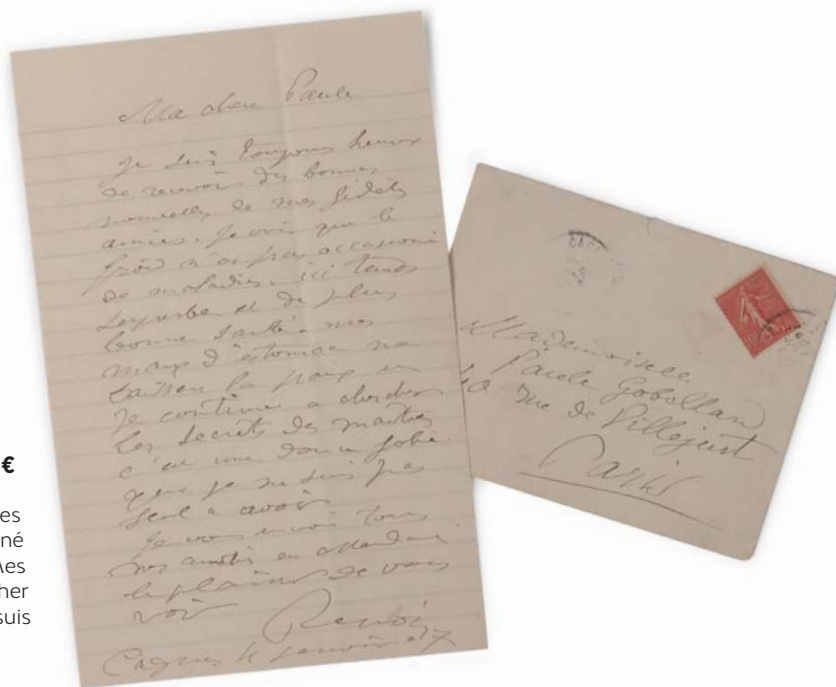 Ma chere Paule
Je suis toujours heureux
de recevoir des bonnes
nouvelles de mes fidèles
amies. Je vois que le
froid n'a pas occasionné
de maladies. ici temps
superbe et de plus
bonne santé. mes
maux d'estomac me
laissent la paix
Je continue a chercher
les secrets des maitres
c'est une douce folie.
que je ne suis pas
seul a avoir
Je vous envoie tous
nos amitiés en attendant
le plaisir de vous
voir
Renoir
Cagnes janvier
Mademoiselle
Paule Gobillard
40 rue de Villejust
Paris
€
es
né
es
her
suis